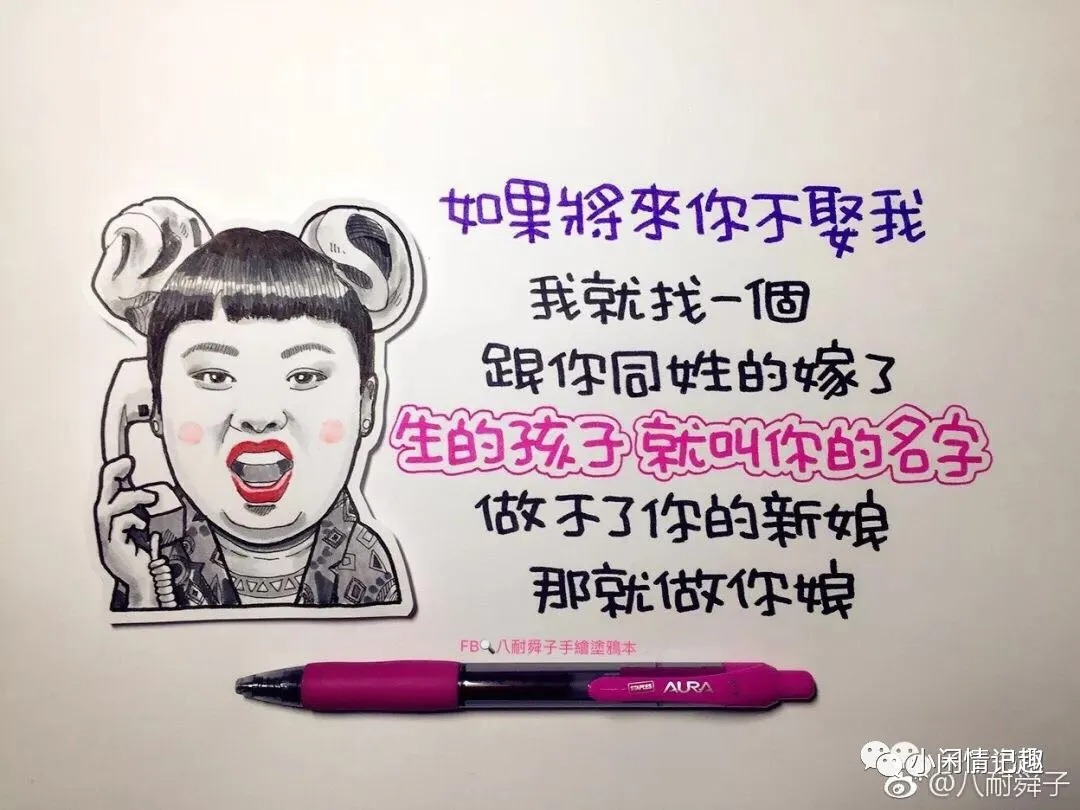 如果將來你不娶我
我就找一個
跟你同姓的嫁了
生的孩子就叫你的名字
做不了你的新娘
那就做你娘
FB🔍八耐舜子手繪塗鴉本
STAPLES AURA
小闲情记趣
@八耐舜子